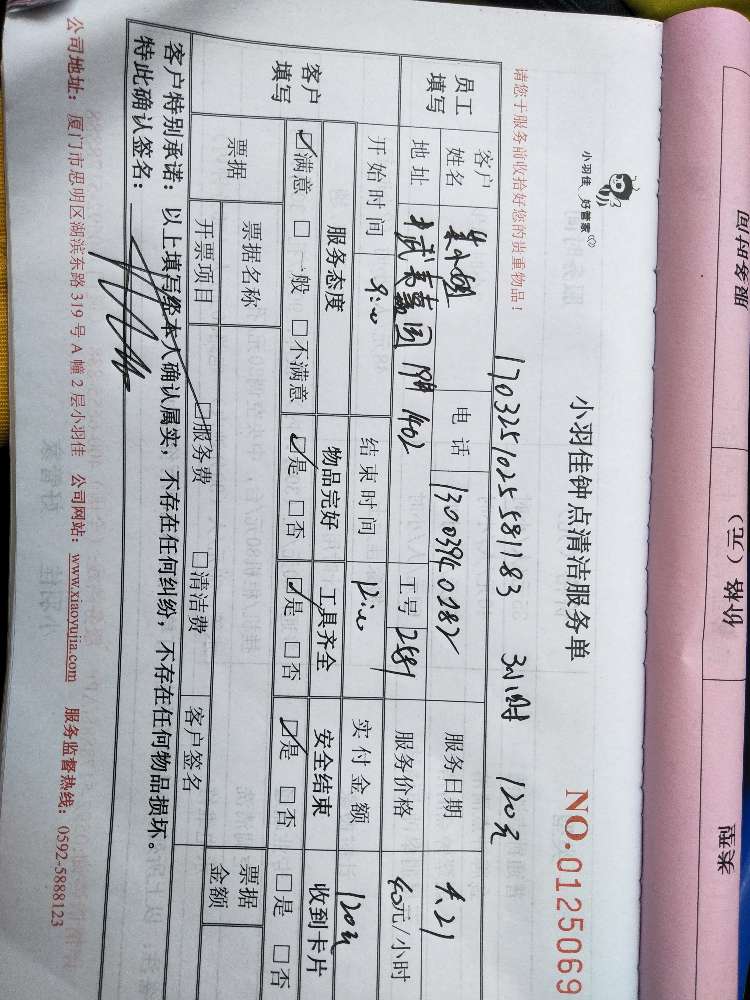 小羽佳 好管家
小羽佳钟点清洁服务单
NO.0125069
请您于服务前收拾好您的贵重物品！
1703251025581183 3小时 120元
员工填写
客户姓名 朱小姐 电话 13003940282 服务日期 4.21
地址 嘉园 1402 工号 2581 服务价格 40元/小时
开始时间 9:00 结束时间 12:00 实付金额 120元
客户填写
服务态度 物品完好 工具齐全 安全结束 收到卡片
☑满意 □一般 □不满意 ☑是 □否 ☑是 □否 ☑是 □否 □是 □否
票据 票据名称 票据金额
开票项目 □服务费 □清洁费 客户签名
客户特别承诺：以上填写经本人确认属实，不存在任何纠纷，不存在任何物品损坏。
特此确认签名：
公司地址：厦门市思明区湖滨东路319号A幢2层小羽佳 公司网站：www.xiaoyujia.com 服务监督热线：0592-5888123
服务时间
价格（元）
类型